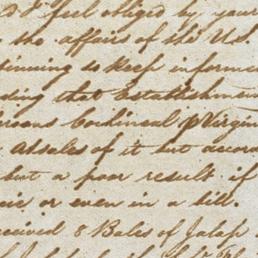 I feel obliged by your
the affairs of the U.S.
tinuing to keep informed
ding that Establishmen
Cochineal pr Virgin
of it but accor
but a poor result if
or even in a bill.
ceived 8 Bales of Jalap